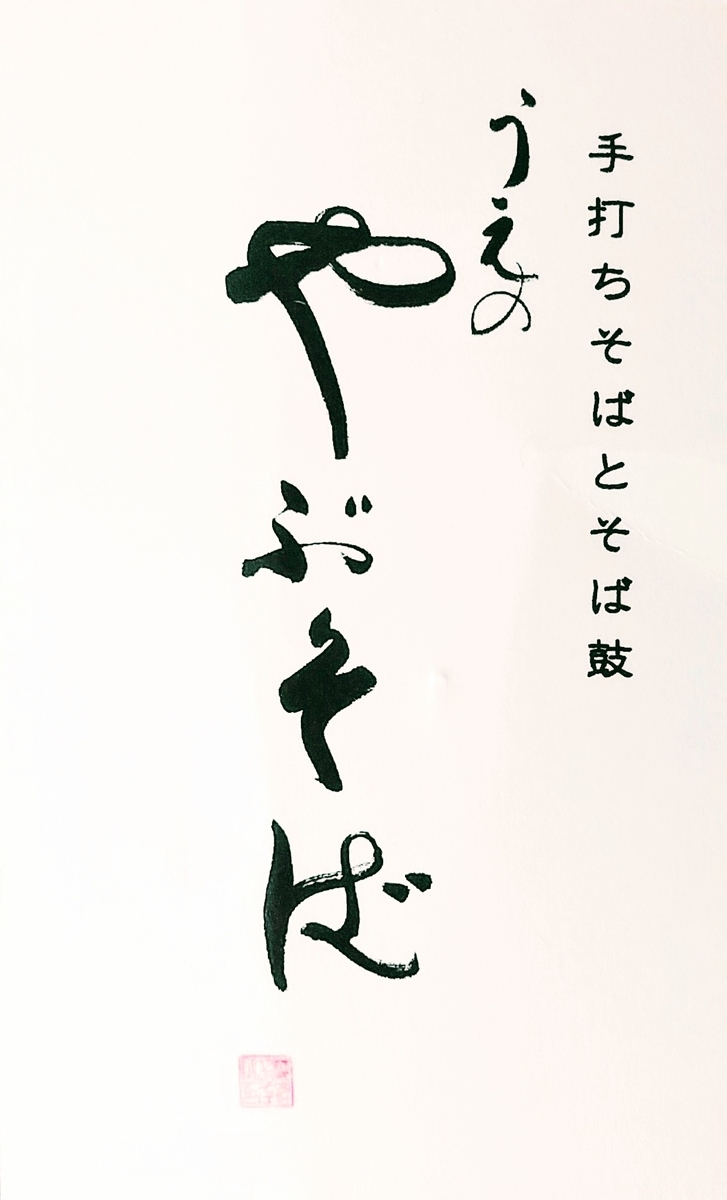 手打ちそばとそば鼓
うえの
やぶそば